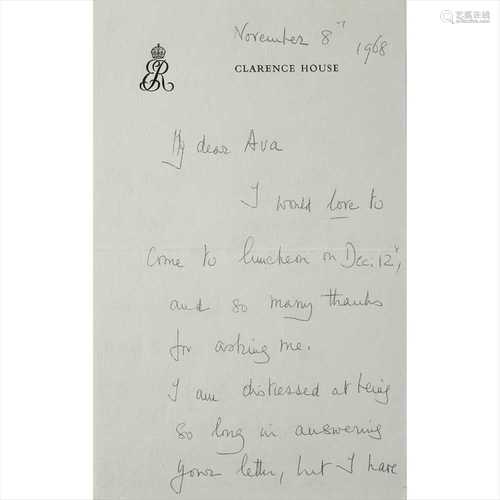 易拍全球
November 8th 1968
ER
CLARENCE HOUSE
My dear Ava
I would love to
come to luncheon on Dec. 12th,
and so many thanks
for asking me.
I am distressed at being
so long in answering
your letter, but I have